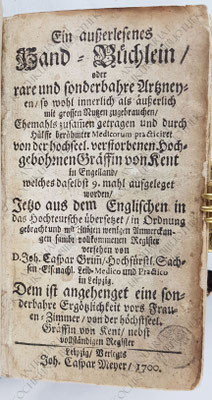 Ein außerlesenes
Hand-Büchlein/
oder
rare und sonderbahre Artzney-
en/so wohl innerlich als äußerlich
mit grossen Nutzen zugebrauchen/
Ehemahls zusam̃en getragen und durch
Hülffe berühmter Medicorum practiciret
von der hochseel. verstorbenen Hoch-
gebohrnen Gräffin von Kent
in Engelland/
welches daselbst 9. mahl aufgeleget
worden/
Jetzo aus dem Englischen in
das Hochteutsche übersetzet/in Ordnung
gebracht und mit einigen wenigen Anmerckun-
gen sambt vollkommenen Register
versehen von
D. Joh. Caspar Grim/Hochfürstl. Sach-
sen-Eisenachl. Leib-Medico und Practico
in Leipzig.
Dem ist angehenget eine son-
derbahre Ergötzligkeit vors Frau-
en-Zimmer/von der höchstseel.
Gräffin von Kent/nebst
vollständigen Register
Leipzig/Verlegts
Joh. Caspar Meyer/1700.